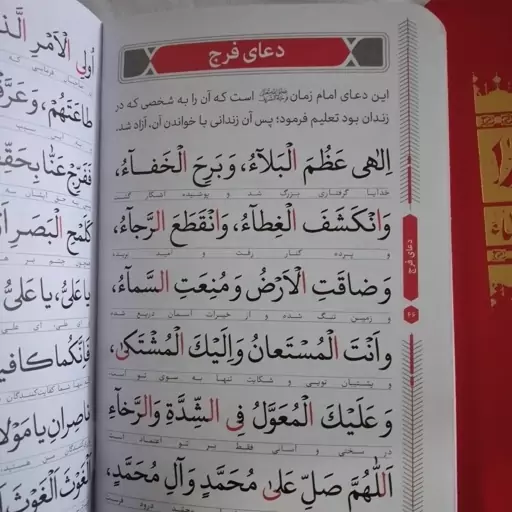 دعای فرج
این دعای امام زمان است که آن را به شخصی که در
زندان بود تعلیم فرمود؛ پس آن زندانی با خواندن آن، آزاد شد.
اِلٰهی عَظُمَ الْبَلآءُ، وَبَرِحَ الْخَفـآءُ،
خدایا گرفتاری بزرگ شد و پوشیده آشکار گشت
وَانْكَشَفَ الْغِطآءُ، وَانْقَطَعَ الرَّجآءُ،
و پرده کنار رفت و امید بریده
وَضاقَتِ الْاَرْضُ وَمُنِعَتِ السَّمآءُ،
و زمین تنگ شده و از خیرات آسمان دریغ شده
وَاَنْتَ الْمُسْتَعانُ وَاِلَيْكَ الْمُشْتَكىٰ،
و پشتیبان تویی و شکایت تنها به سوی تو است
وَعَلَيْكَ الْمُعَوَّلُ فِى الشِّدَّةِ وَالرَّخآءِ
در سختی و آسانی فقط بر تو اعتماد است
اَللّٰهُمَّ صَلِّ عَلىٰ مُحَمَّدٍ وَآلِ مُحَمَّدٍ،
دعای فرج
۶۶
اُولِى الْاَمْرِ
طاعَتَهُمْ، وَعَرَّ
فَفَرِّجْ عَنّا بِحَقِّهِ
كَلَمْحِ الْبَصَرِ
يا عَلِيُّ، يا عَلِيُّ
فَاِنَّكُما كافِيـ
ناصِرانِ يا مَوْلا
الْغَوْثَ الْغَوْثَ